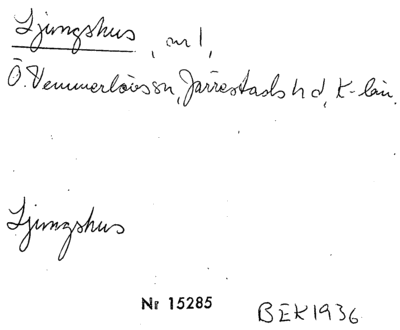 Ljungshus, nr 1,
Ö. Vemmerlövs sn, Järrestads hd, K-län.
Ljungshus
Nr 15285
BEK1936